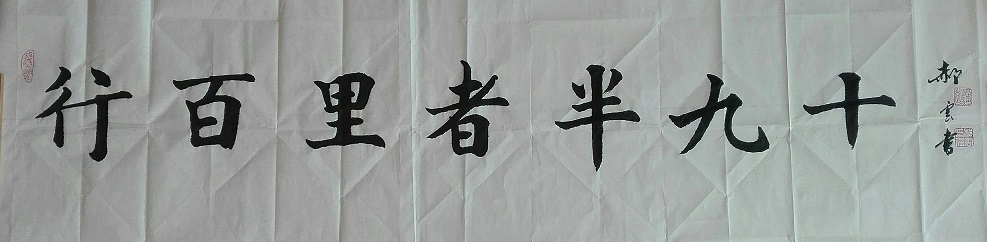 行百里者半九十
郝云書